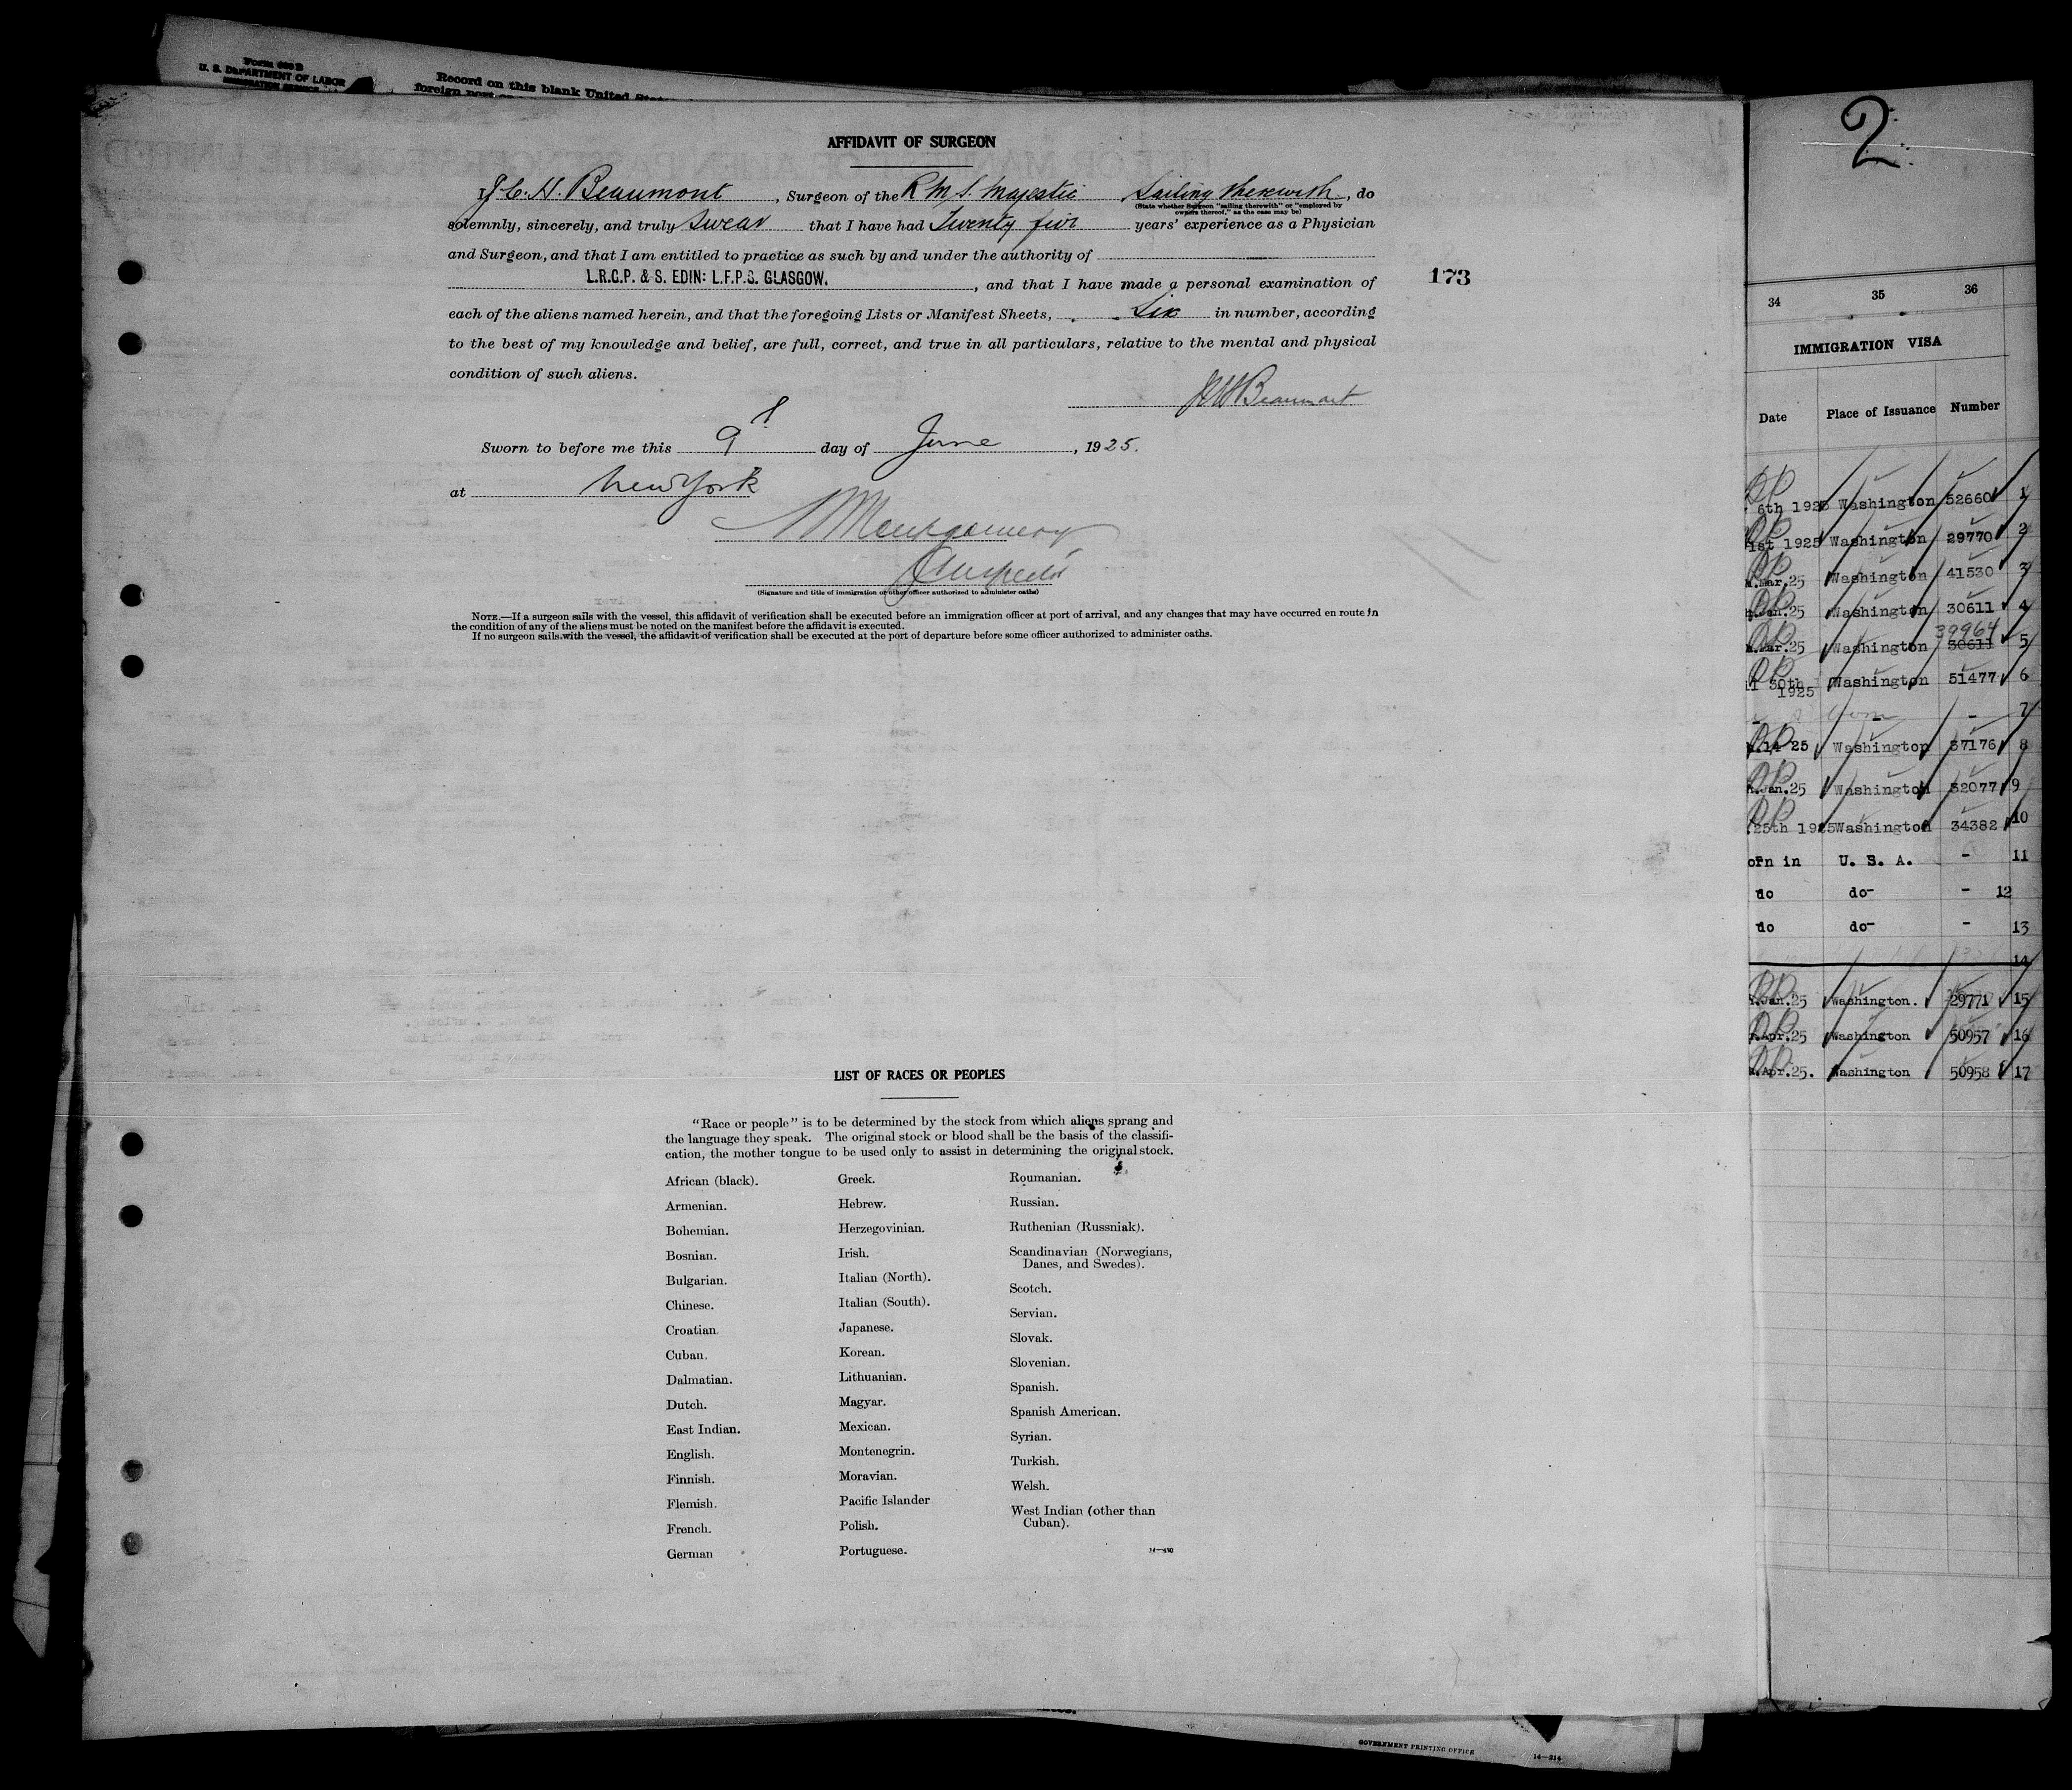 Form 680 B
U. S. DEPARTMENT OF LABOR
IMMIGRATION SERVICE
Record on this blank United
foreign port
AFFIDAVIT OF SURGEON
I, J. C. H. Beaumont, Surgeon of the R.M.S. Majestic Sailing therewith, do
(State whether Surgeon "sailing therewith" or "employed by
owners thereof," as the case may be)
solemnly, sincerely, and truly swear that I have had Twenty five years' experience as a Physician
and Surgeon, and that I am entitled to practice as such by and under the authority of
L.R.C.P. & S. EDIN: L.F.P.S. GLASGOW., and that I have made a personal examination of
173
each of the aliens named herein, and that the foregoing Lists or Manifest Sheets, Six in number, according
to the best of my knowledge and belief, are full, correct, and true in all particulars, relative to the mental and physical
condition of such aliens.
JCHBeaumont
Sworn to before me this 9 day of June, 1925.
at New York
Montgomery
(Signature and title of immigration or other officer authorized to administer oaths)
NOTE.—If a surgeon sails with the vessel, this affidavit of verification shall be executed before an immigration officer at port of arrival, and any changes that may have occurred en route in
the condition of any of the aliens must be noted on the manifest before the affidavit is executed.
If no surgeon sails with the vessel, the affidavit of verification shall be executed at the port of departure before some officer authorized to administer oaths.
LIST OF RACES OR PEOPLES
"Race or people" is to be determined by the stock from which aliens sprang and
the language they speak. The original stock or blood shall be the basis of the classifi-
cation, the mother tongue to be used only to assist in determining the original stock.
African (black).
Armenian.
Bohemian.
Bosnian.
Bulgarian.
Chinese.
Croatian
Cuban.
Dalmatian.
Dutch.
East Indian.
English.
Finnish.
Flemish.
French.
German
Greek.
Hebrew.
Herzegovinian.
Irish.
Italian (North).
Italian (South).
Japanese.
Korean.
Lithuanian.
Magyar.
Mexican.
Montenegrin.
Moravian.
Pacific Islander
Polish.
Portuguese.
Roumanian.
Russian.
Ruthenian (Russniak).
Scandinavian (Norwegians,
Danes, and Swedes).
Scotch.
Servian.
Slovak.
Slovenian.
Spanish.
Spanish American.
Syrian.
Turkish.
Welsh.
West Indian (other than
Cuban).
2
34 35 36
IMMIGRATION VISA
Date Place of Issuance Number
6th 1925 Washington 52660 1
1st 1925 Washington 29770 2
Mar.25 Washington 41530 3
Jan.25 Washington 30611 4
39964
Mar.25 Washington 30611 5
30th Washington 51477 6
1925
- - - 7
14 25 Washington 37176 8
Jan.25 Washington 32077 9
25th 1925 Washington 34382 10
orn in U. S. A. - 11
do do- - 12
do do- - 13
14
Jan.25 Washington. 29771 15
Apr.25 Washington 50957 16
Apr.25. Washington 50958 17
GOVERNMENT PRINTING OFFICE
14-214